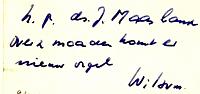 h. p. ds. J. Maasland
over 2 maanden komt er
nieuw orgel